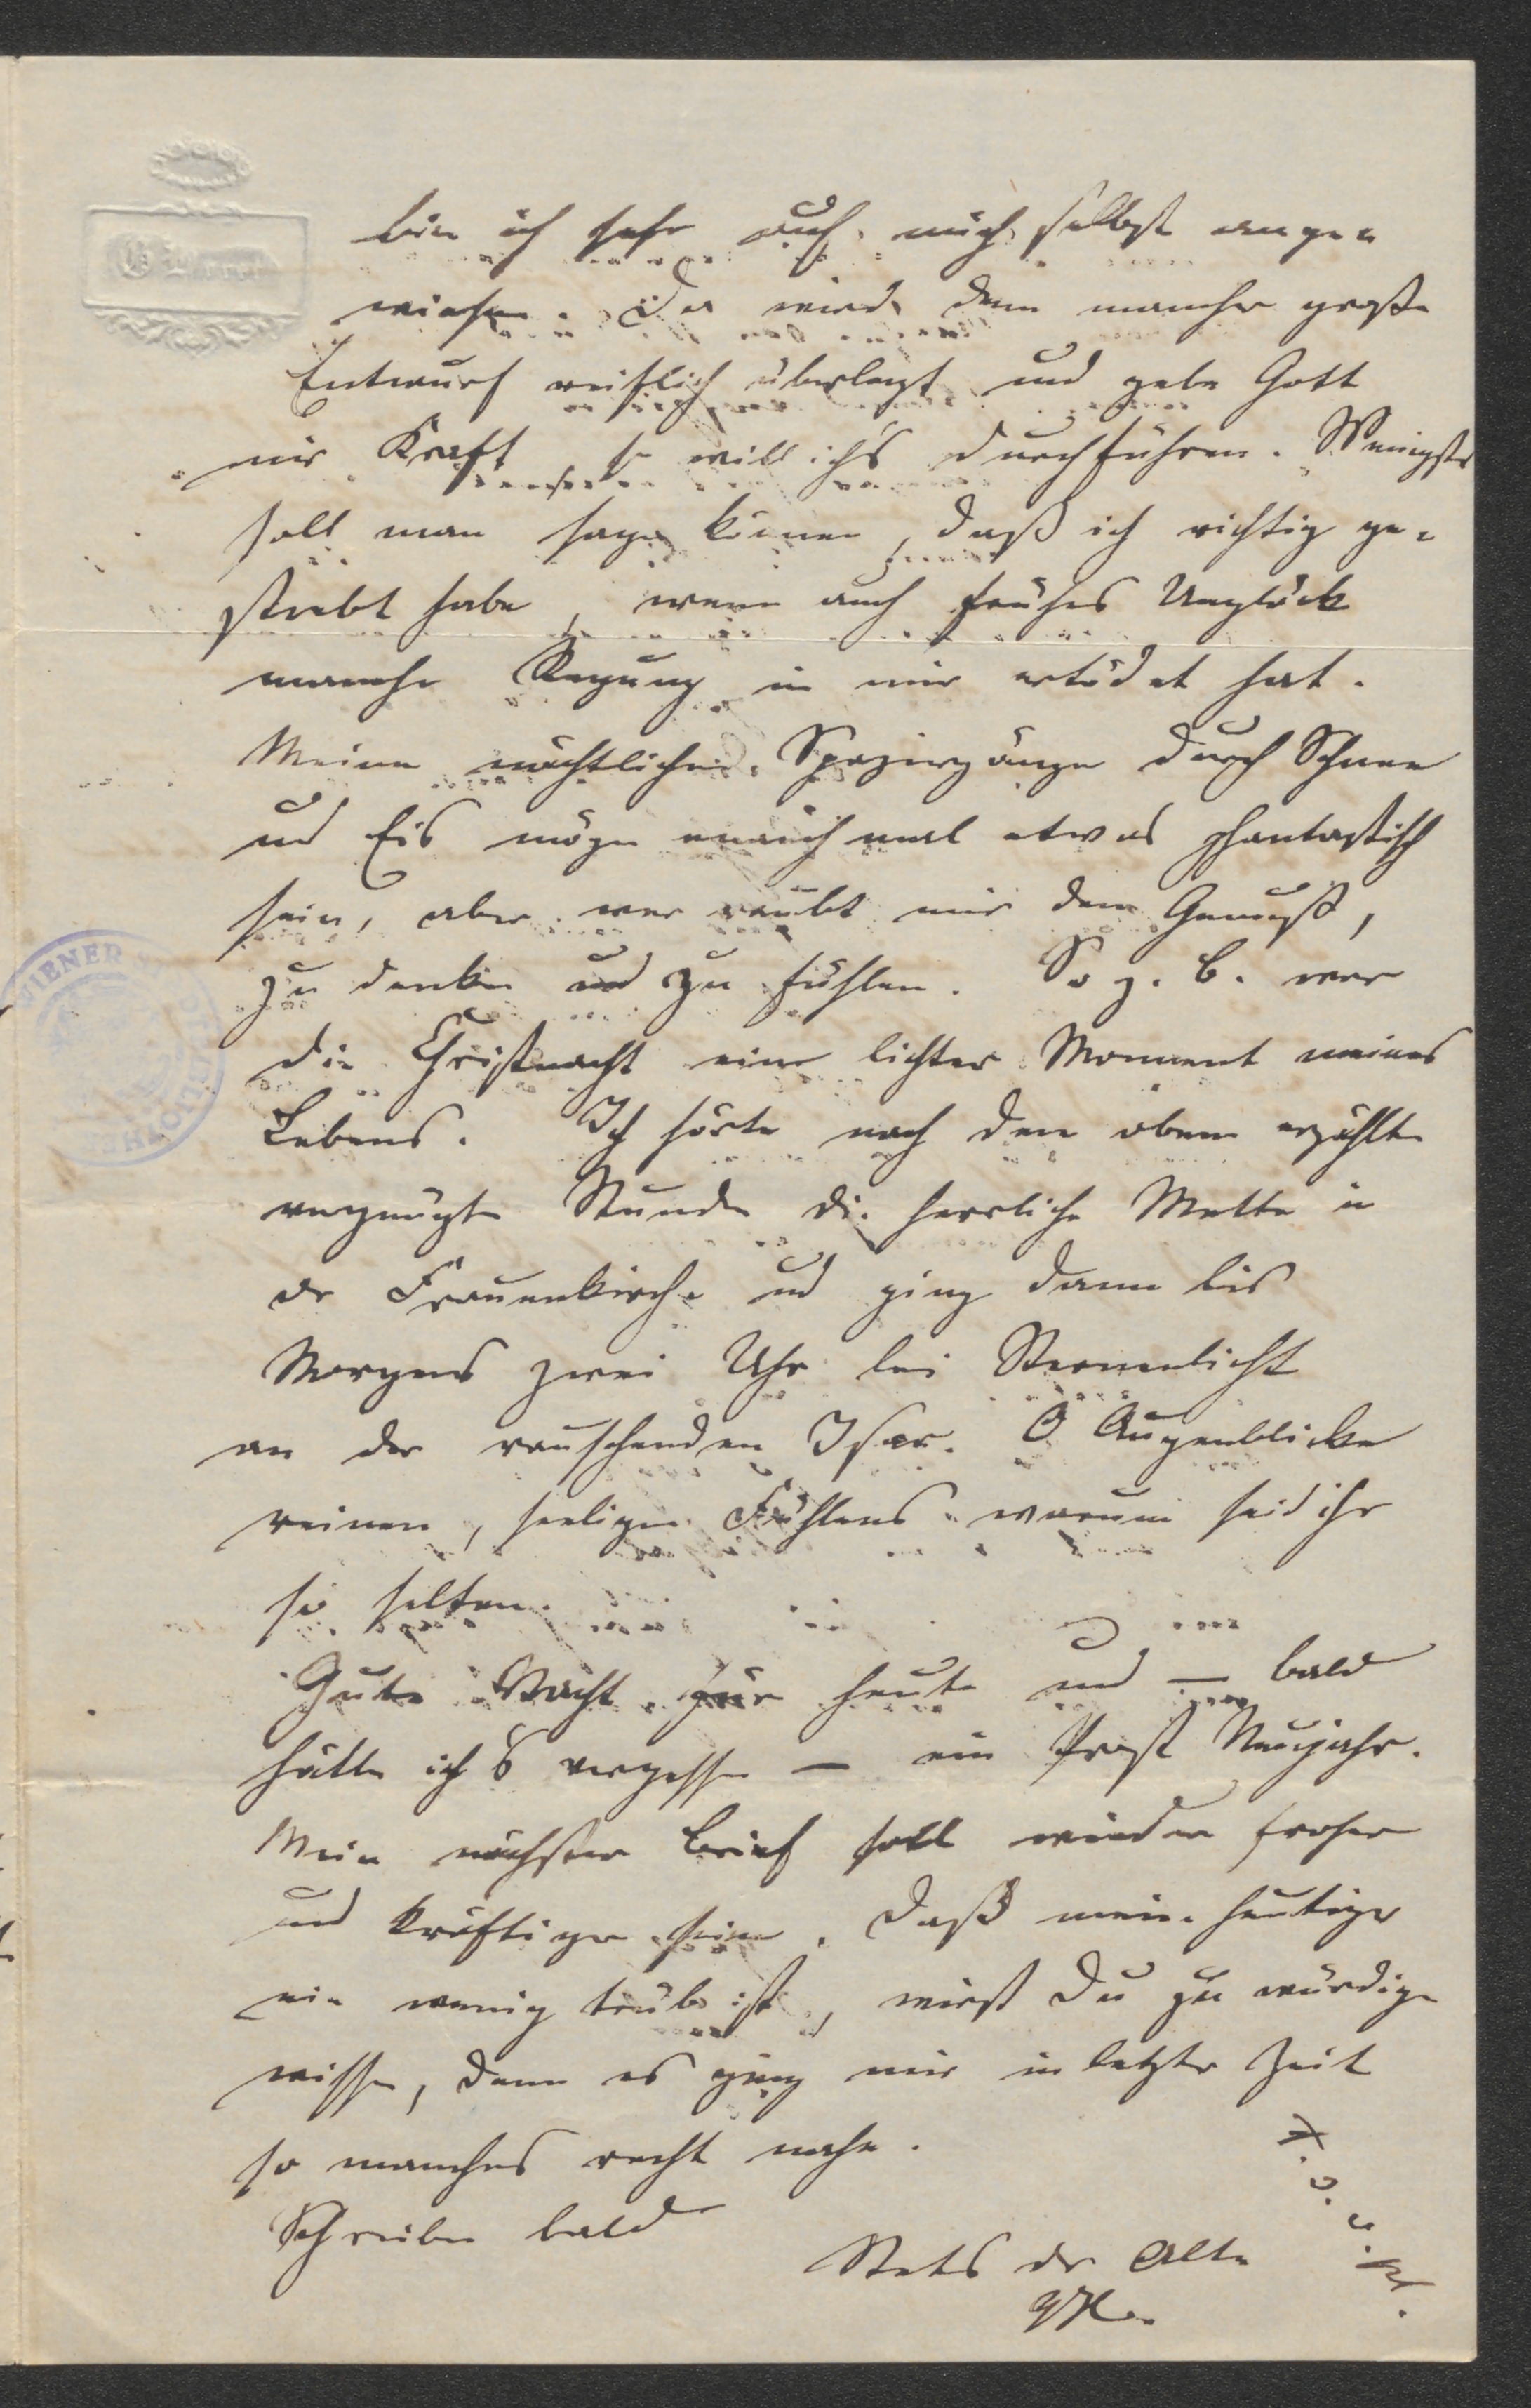 bin ich sehr auf mich selbst ange=
wiesen. Da wird denn mancher große
Entwurf reiflich überlegt und gebe Gott
mir Kraft so will ich's durchführen. Wenigstens
soll man sagen können, daß ich richtig ge=
strebt habe, wenn auch frühes Unglück
manche Regung in mir ertödet hat.
Meine nächtlichen Spaziergänge durch Schnee
und Eis mögen manchmal etwas phantastisch
sein, aber wer raubt mir den Genuß,
zu denken und zu fühlen. So z. B. war
die Christnacht ein lichter Moment meines
Lebens. Ich hörte nach den oben erzählten
vergnügten Stunden die herrliche Mette in
der Frauenkirche und ging dann bis
Morgens zwei Uhr bei Sternenlicht
an der rauschenden Isar. O Augenblicke
reinen, seeligen Fühlens warum seid ihr
so selten.
Gute Nacht für heute und — bald
hätte ich's vergessen — ein Prost Neujahr.
Mein nächster Brief soll wieder froher
und kräftiger sein. Daß mein heutiger
ein wenig trüb ist, wirst Du zu würdigen
wissen, denn es ging mir in letzter Zeit
so manches recht nahe.
Schreibe bald
Stets der Alte
WIENER